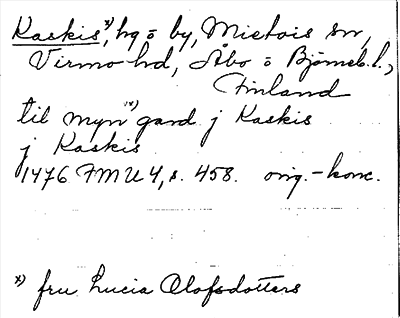 Kaskis *), hg o by, Mietois sn,
Virmo hd, Åbo o Björneb. l.,
Finland
til myn *) gard j Kaskis
j Kaskis
1476 FMU 4, s. 458. orig.-konc.
*) fru Lucia Olofsdotters